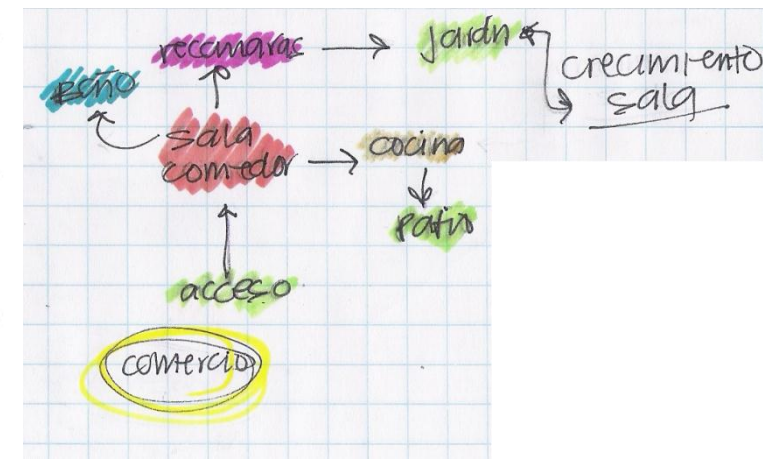 recamaras
jardin
crecimiento
sala
Baño
sala
comedor
cocina
patio
acceso
comercio